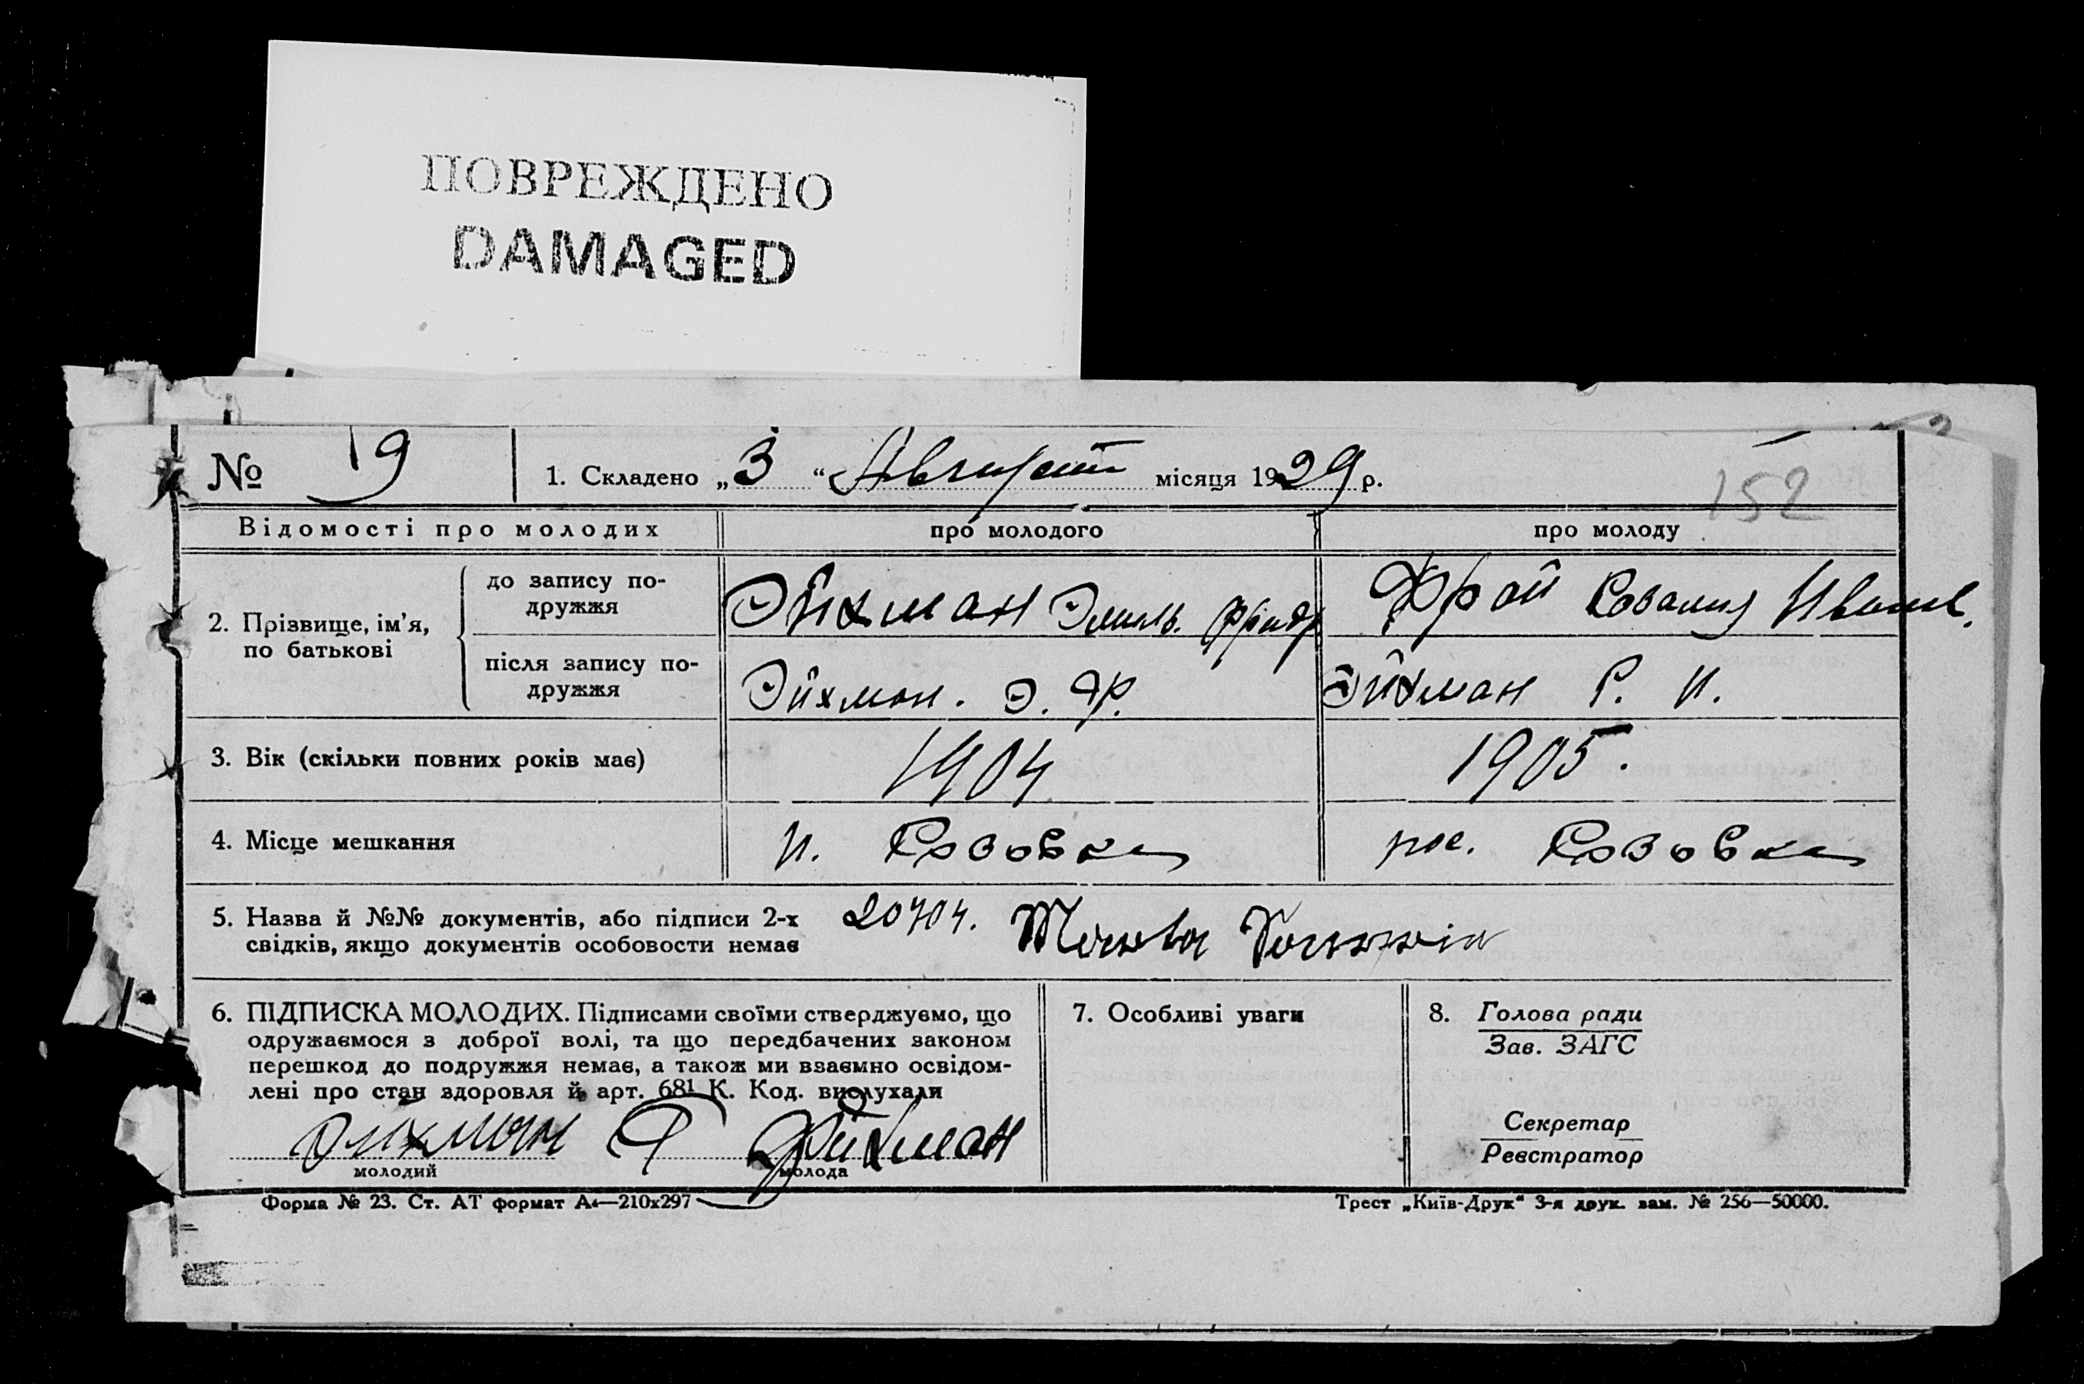 ПОВРЕЖДЕНО
DAMAGED
№ 19 1. Складено „3“ Август місяця 1929 р.
152
Відомості про молодих про молодого про молоду
2. Прізвище, ім’я, по батькові
до запису по-
дружжя
Эйхман Эмиль Фридр Фрай Розалия Иванов.
після запису по-
дружжя
Эйхман. Э. Фр. Эйхман Р. И.
3. Вік (скільки повних років має) 1904 1905.
4. Місце мешкання п. Розовка пос. Розовка
5. Назва й №№ документів, або підписи 2-х
свідків, якщо документів особовости немає
20704.
6. ПІДПИСКА МОЛОДИХ. Підписами своїми стверджуємо, що
одружаємося з доброї волі, та що передбачених законом
перешкод до подружжя немає, а також ми взаємно освідом-
лені про стан здоровля й арт. 681 К. Код. вислухали
Эйхман Эйхман
молодий молода
7. Особливі уваги
8. Голова ради
Зав. ЗАГС
Секретар
Реєстратор
Форма № 23. Ст. АТ формат А4—210х297 Трест „Київ-Друк“ 3-я друк. зам. № 256—50000.